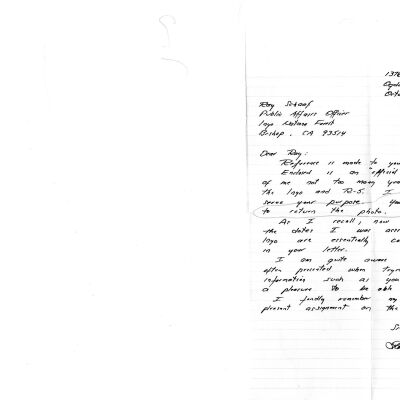 1376
Ogd
Octo
Roy Schaaf
Public Affairs Officer
Inyo National Forest
Bishop, CA 93514
Dear Roy:
Reference is made to you
Enclosed is an "official
of me not too many yea
the Inyo and R-5. I
serve your purpose. You
to return the photo.
As I recall, now
the dates I was ass
Inyo are essentially co
in your letter.
I am quite aware
often presented when tryin
information such as you
a pleasure to be able
I fondly remember my
pleasant assignment on the
Si